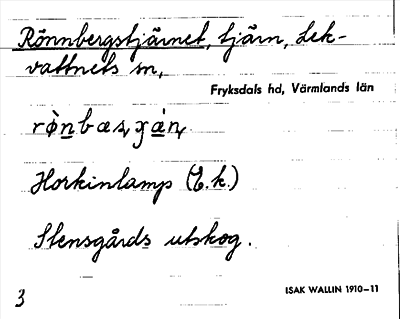 Rönnbergstjärnet, tjärn, Lek-
vattnets sn,
Fryksdals hd, Värmlands län
Horkintamp (E.k.)
Stensgårds utskog.
3
ISAK WALLIN 1910–11